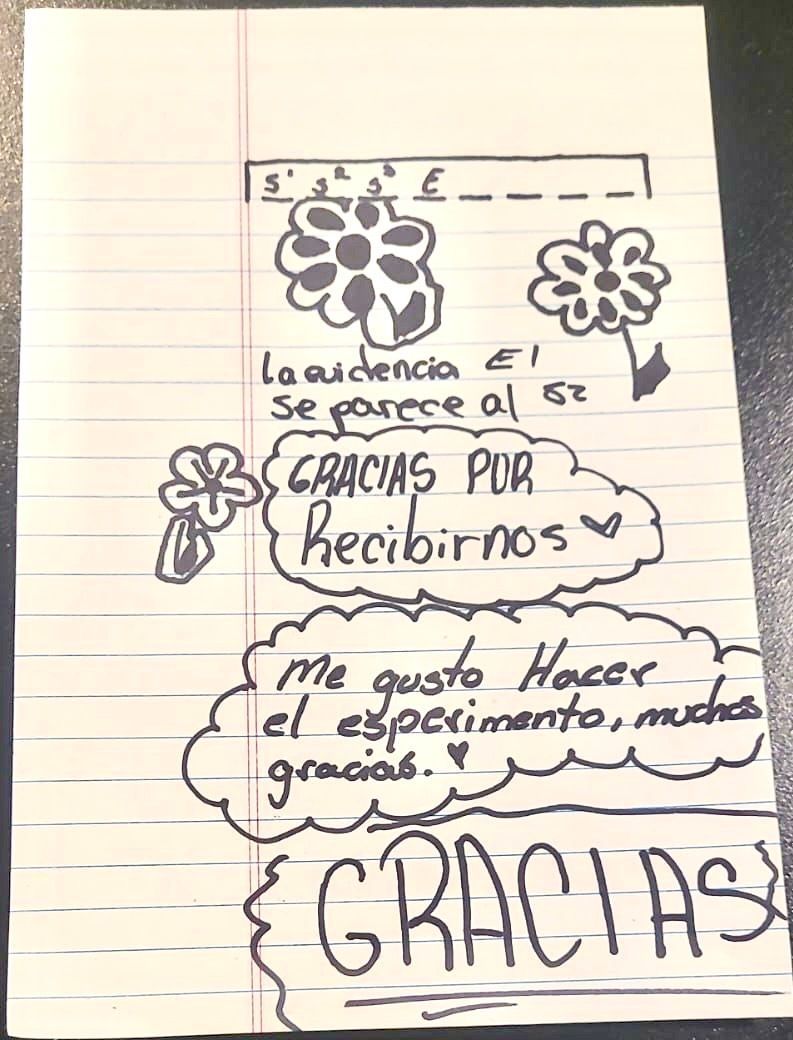 S¹ S² S³ E
La evidencia E1
se parece al S2
GRACIAS POR
Recibirnos
Me gusto Hacer
el esperimento, muchas
gracias.
GRACIAS